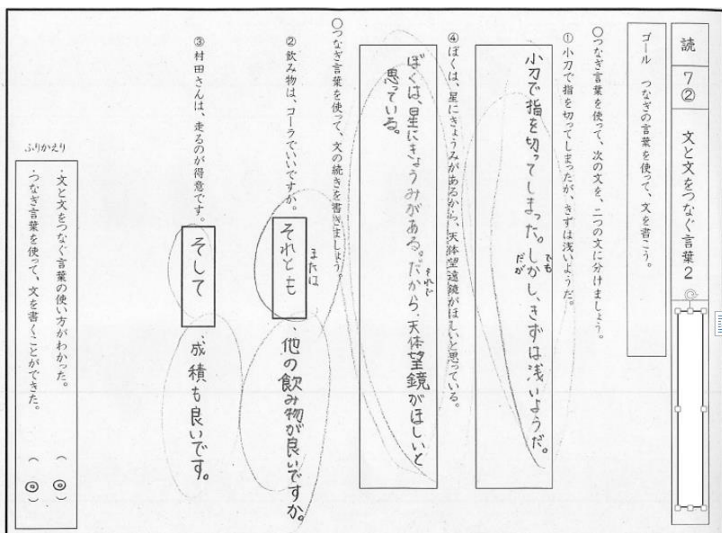 読 7② 文と文をつなぐ言葉2
ゴール つなぎの言葉を使って、文を書こう。
○つなぎ言葉を使って、次の文を、二つの文に分けましょう。
①小刀で指を切ってしまったが、きずは浅いようだ。
小刀で指を切ってしまった。しかし、きずは浅いようだ。
でも
だが
④ぼくは、星にきょうみがあるから、天体望遠鏡がほしいと思っている。
ぼくは、星にきょうみがある。だから、天体望鏡がほしいと
それで
思っている。
○つなぎ言葉を使って、文の続きを書きましょう。
②飲み物は、コーラでいいですか。
それとも、他の飲み物が良いですか。
または
③村田さんは、走るのが得意です。
そして、成績も良いです。
ふりかえり
・文と文をつなぐ言葉の使い方がわかった。 (◎)
・つなぎ言葉を使って、文を書くことができた。 (◎)